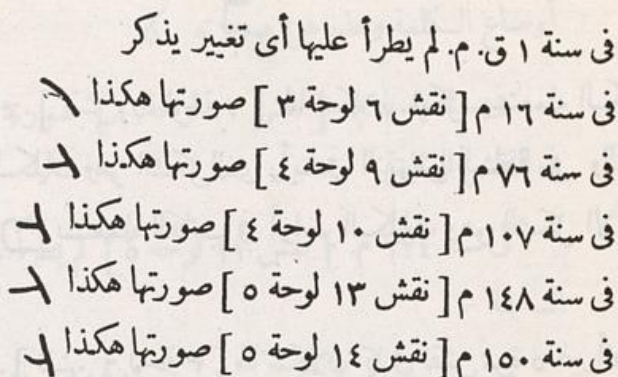 فى سنة ١ ق. م. لم يطرأ عليها أى تغيير يذكر
فى سنة ١٦ م [ نقش ٦ لوحة ٣ ] صورتها هكذا
فى سنة ٧٦ م [ نقش ٩ لوحة ٤ ] صورتها هكذا
فى سنة ١٠٧ م [ نقش ١٠ لوحة ٤ ] صورتها هكذا
فى سنة ١٤٨ م [ نقش ١٣ لوحة ٥ ] صورتها هكذا
فى سنة ١٥٠ م [ نقش ١٤ لوحة ٥ ] صورتها هكذا